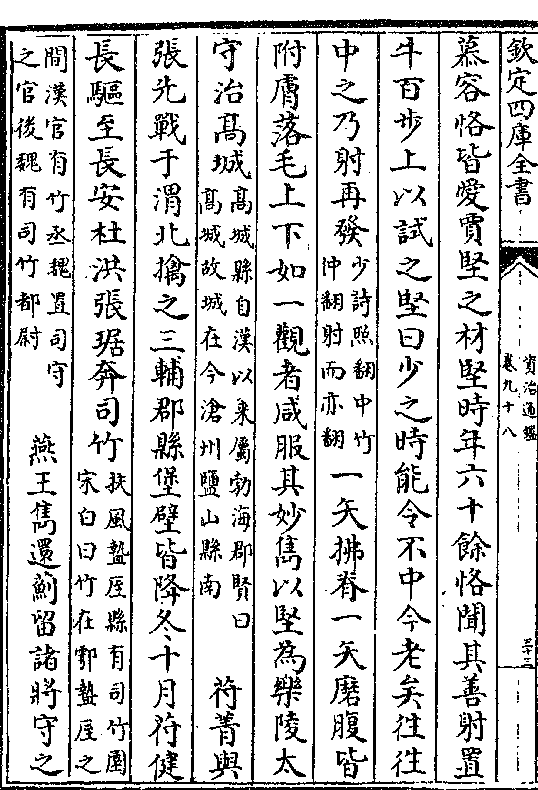 欽定四庫全書
資治通鑑
卷九十八
慕容恪皆愛賈堅之材堅時年六十餘恪聞其善射置
牛百步上以試之堅曰少之時能令不中今老矣往往
中之乃射再發少詩照翻中竹仲翻射而亦翻一矢拂脊一矢磨腹皆
附膚落毛上下如一觀者咸服其妙雋以堅為樂陵太
守治髙城髙城縣自漢以來屬勃海郡賢曰髙城故城在今滄州鹽山縣南 苻菁與
張先戰于渭北擒之三輔郡縣堡壁皆降冬十月苻健
長驅至長安杜洪張琚奔司竹扶風盩厔縣有司竹園宋白曰竹在鄠盩厔之
間漢官有竹丞魏置司守之官後魏有司竹都尉 燕王雋還薊留諸將守之